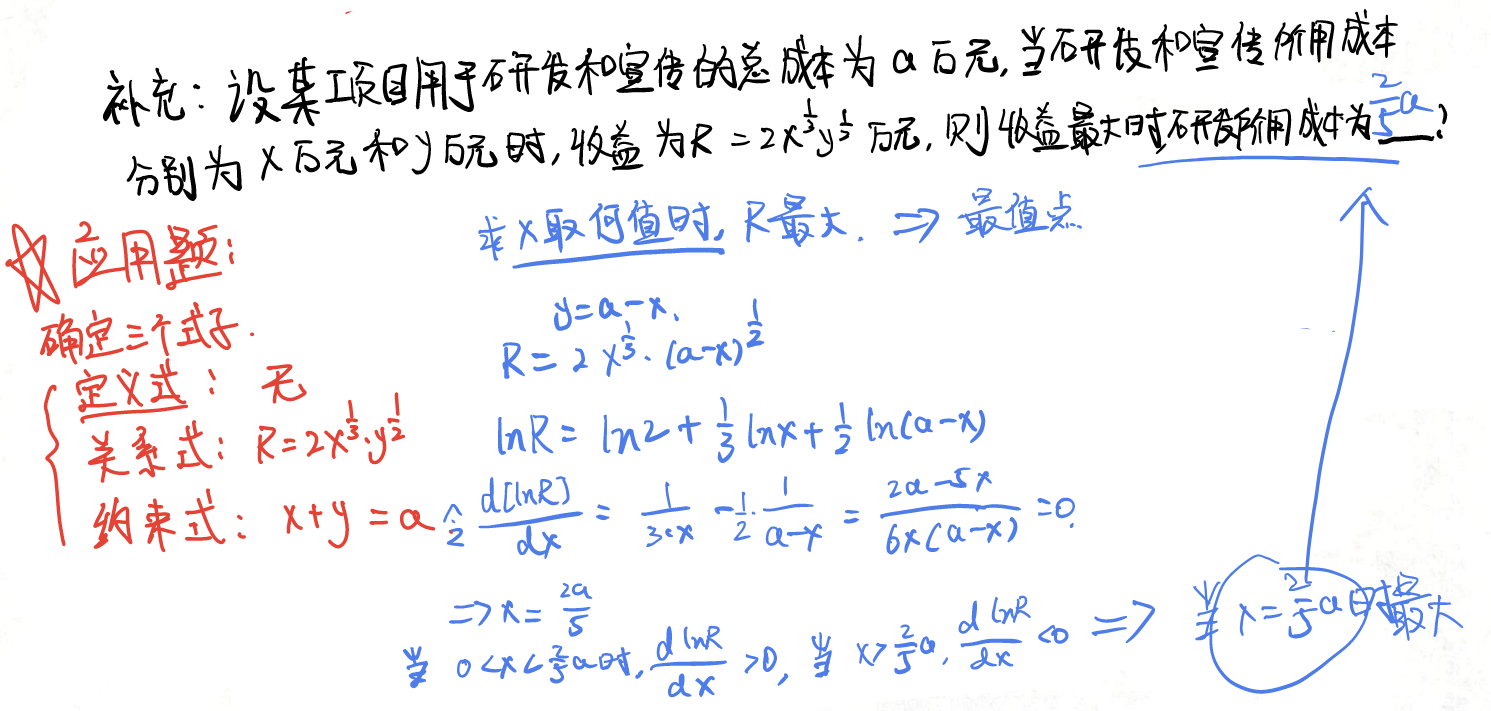 补充：设某项目用于研发和宣传的总成本为a万元，当研发和宣传所用成本
分别为x万元和y万元时，收益为R=2x^{1/3}y^{1/2}万元，则收益最大时研发所用成本为 2/5 a ?
求x取何值时，R最大. ⇒ 最值点
☆应用题：
确定三个式子.
定义式：无
关系式：R=2x^{1/3}·y^{1/2}
约束式：x+y=a
y=a-x.
R=2x^{1/3}·(a-x)^{1/2}
lnR=ln2+1/3 lnx+1/2 ln(a-x)
令 d[lnR]/dx = 1/(3·x) - 1/2·1/(a-x) = (2a-5x)/(6x(a-x)) =0.
⇒x=2a/5
当 0<x<2/5a时, dlnR/dx >0, 当 x>2/5a, dlnR/dx <0 ⇒ 当 x=2/5a时最大